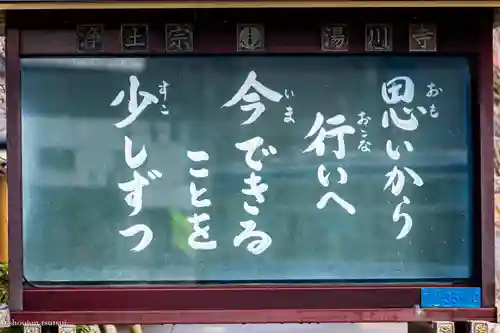 浄土宗 湯川寺
思いから
おも
行いへ
おこな
今できる
いま
ことを
少しずつ
すこ